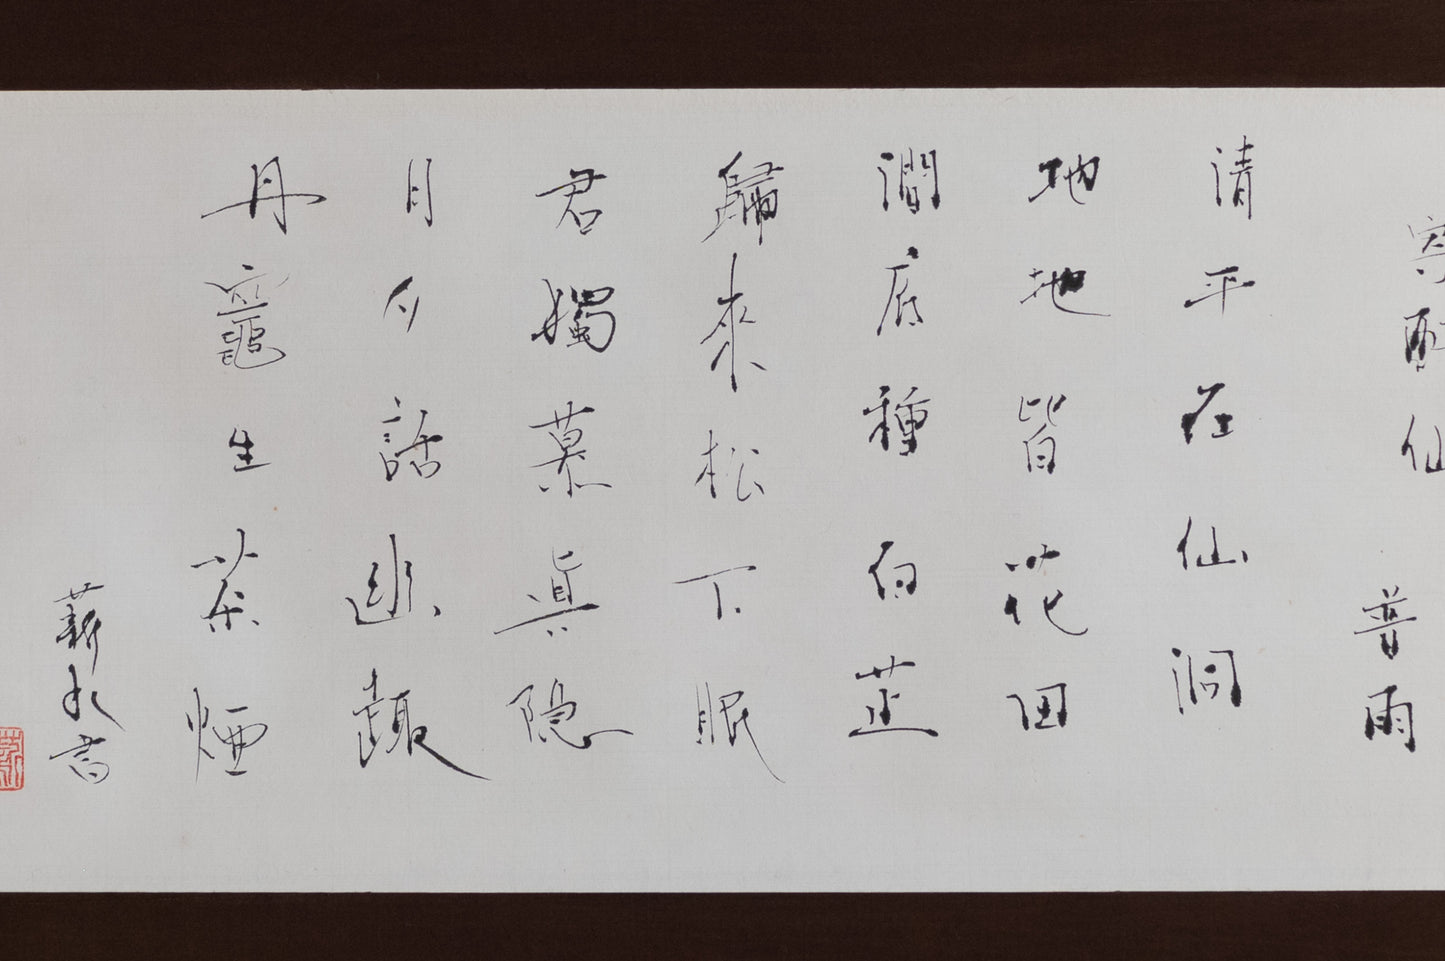 寄酣仙 普雨
清平在仙洞
地地皆花田
澗底種白芷
歸來松下眠
君獨慕真隐
月夕話幽趣
丹竈生茶煙
蘄水書